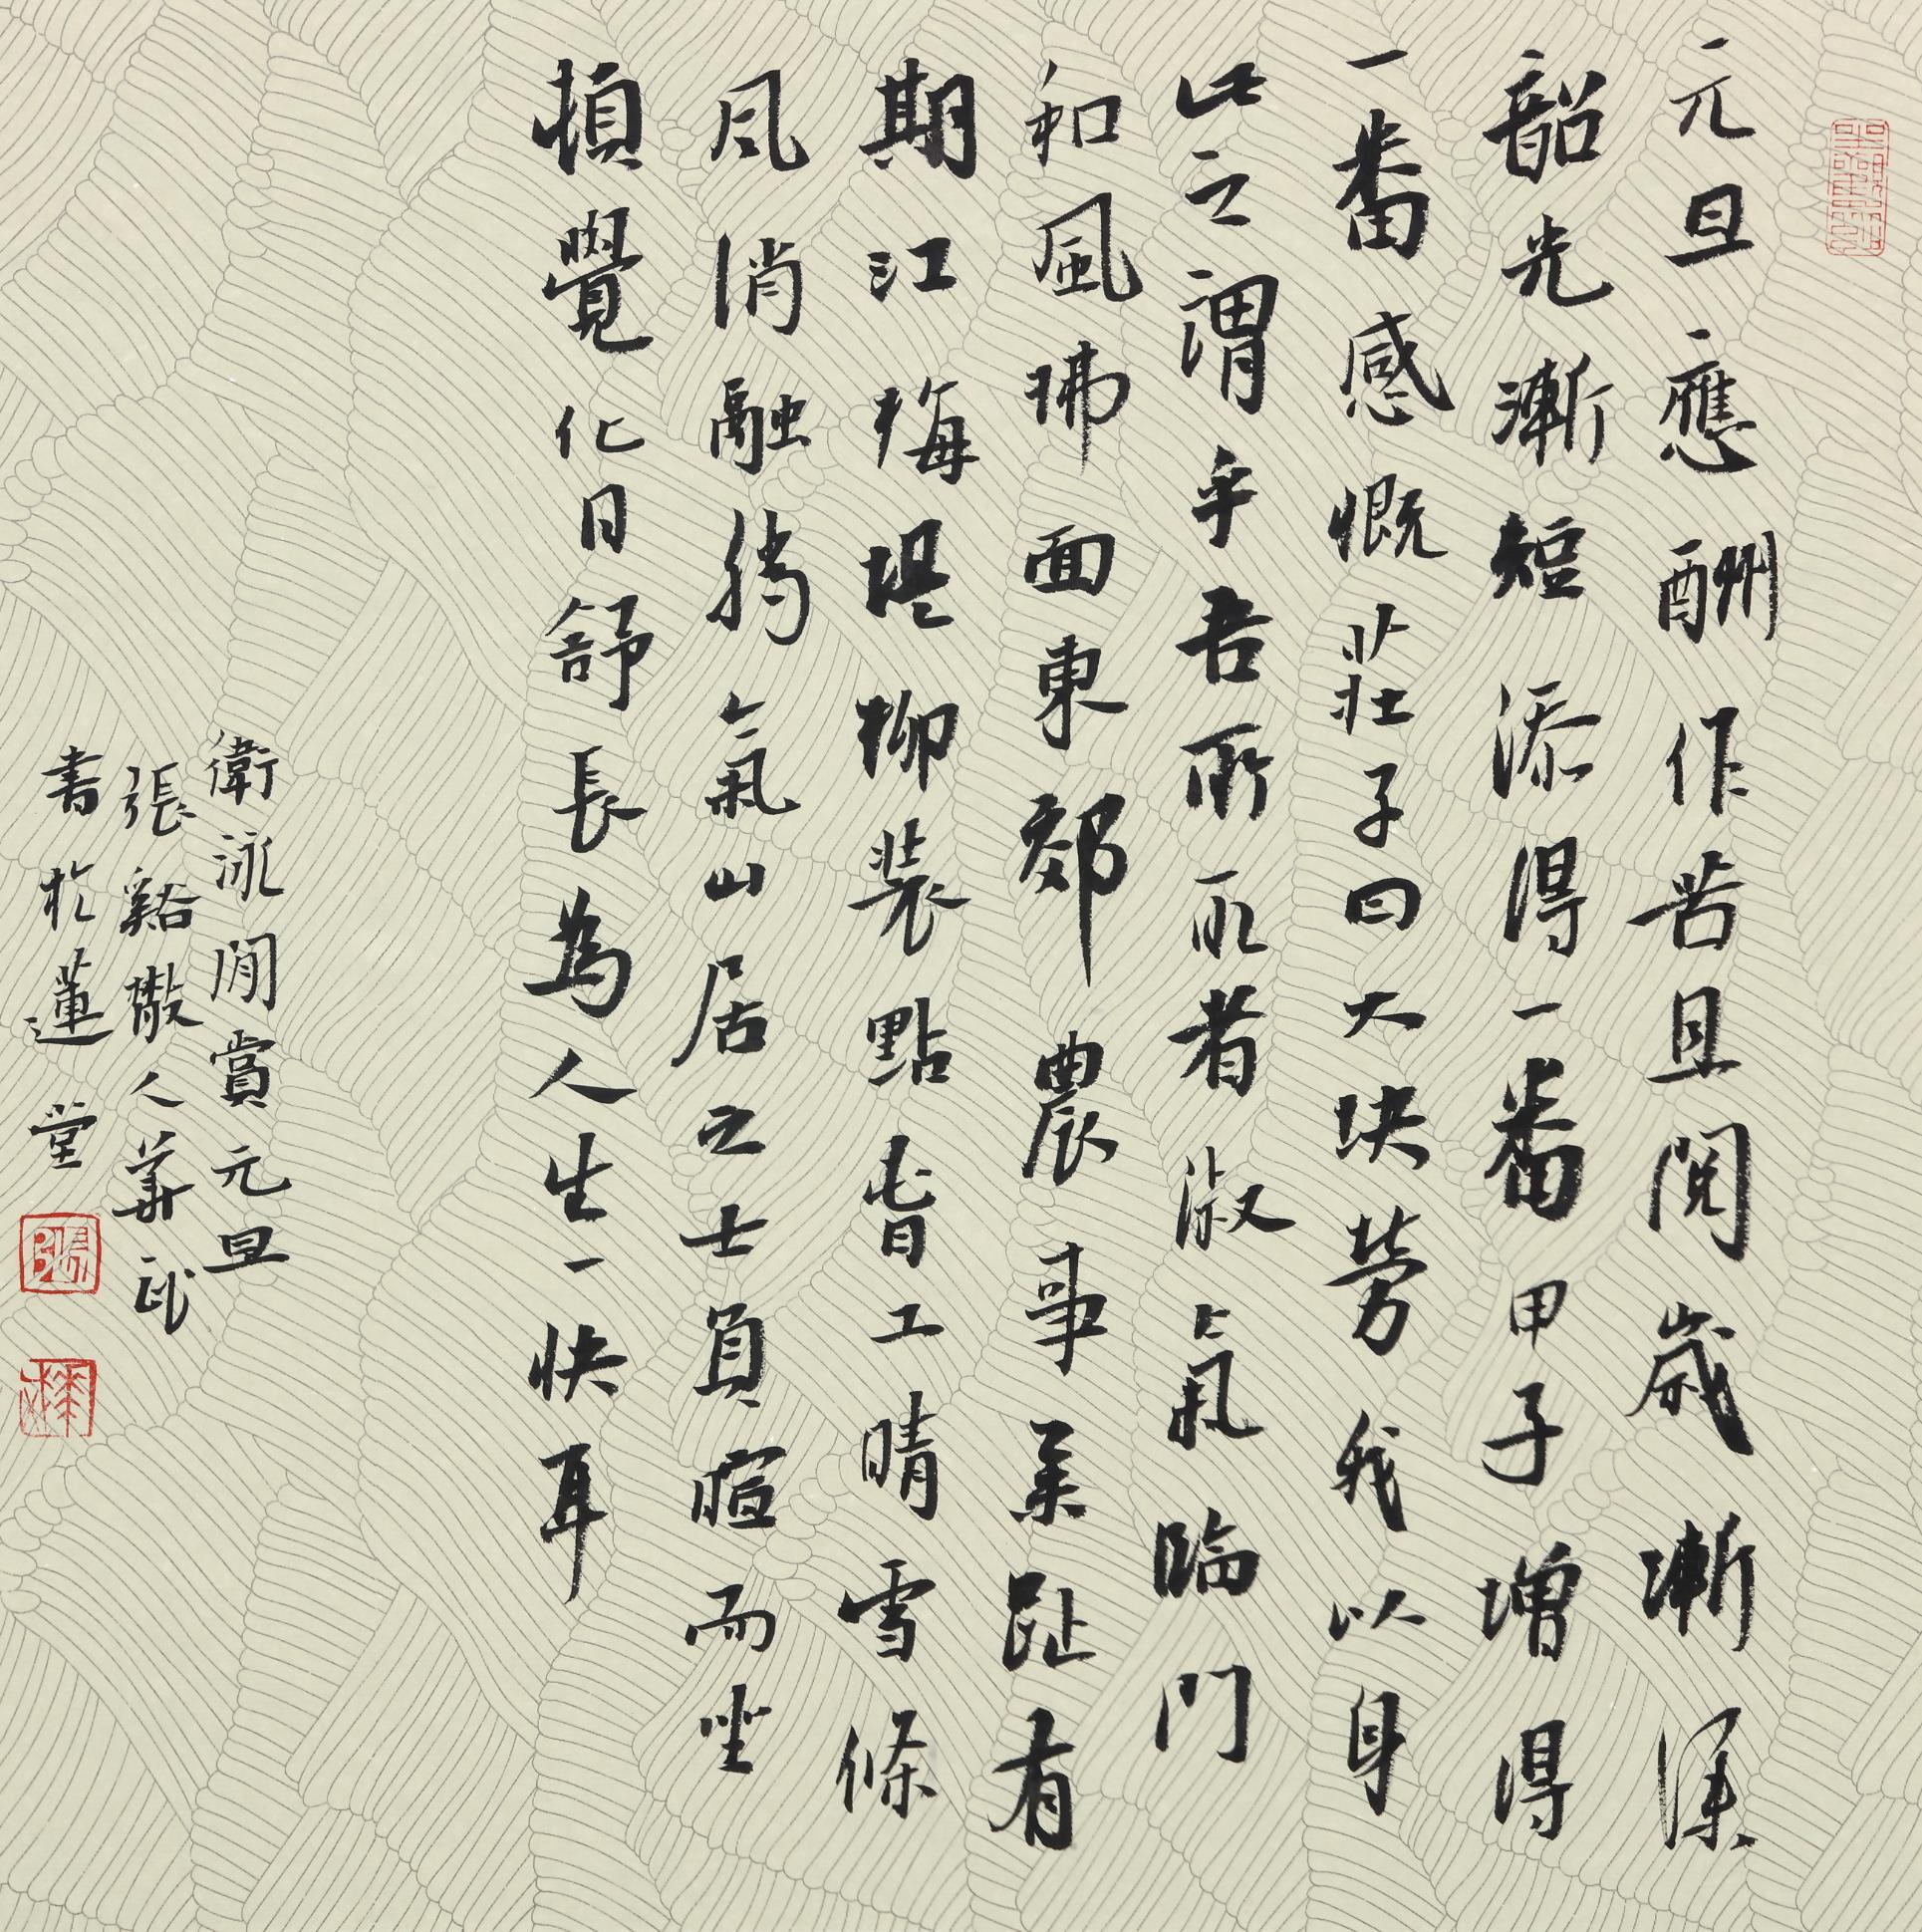 元旦應酬作苦且閱歲漸深
韶光漸短添得一番甲子增得
一番感慨莊子曰大塊勞我以身
此之謂乎吾所取者淑氣臨門
和風拂面東郊農事舉趾有
期江梅堤柳裝點春工晴雪條
風消融腊氣山居之士負暄而坐
頓覺化日舒長為人生一快耳
衛泳閒賞元旦
張谿散人華武
書於蓮堂